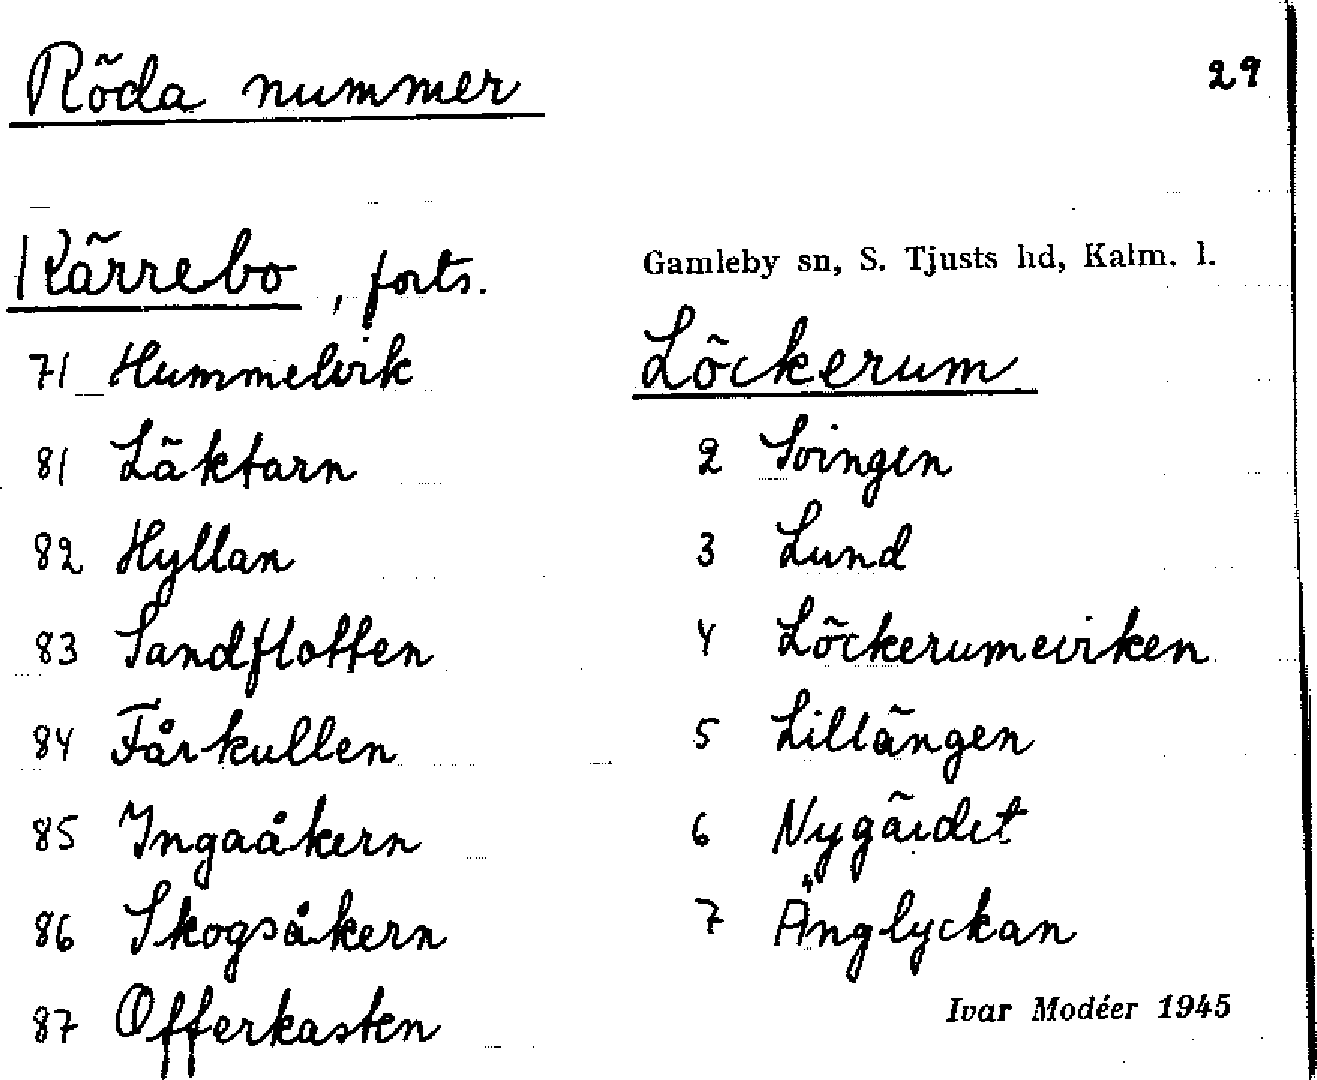 Röda nummer
29
Kärrebo, forts.
71 Hummelvik
81 Läktarn
82 Hyllan
83 Sandflotten
84 Fårkullen
85 Ingaåkern
86 Skogsåkern
87 Offerkasten
Gamleby sn, S. Tjusts hd, Kalm. l.
Löckerum
2 Svingen
3 Lund
4 Löckerumsviken
5 Lillängen
6 Nygärdet
7 Änglyckan
Ivar Modéer 1945